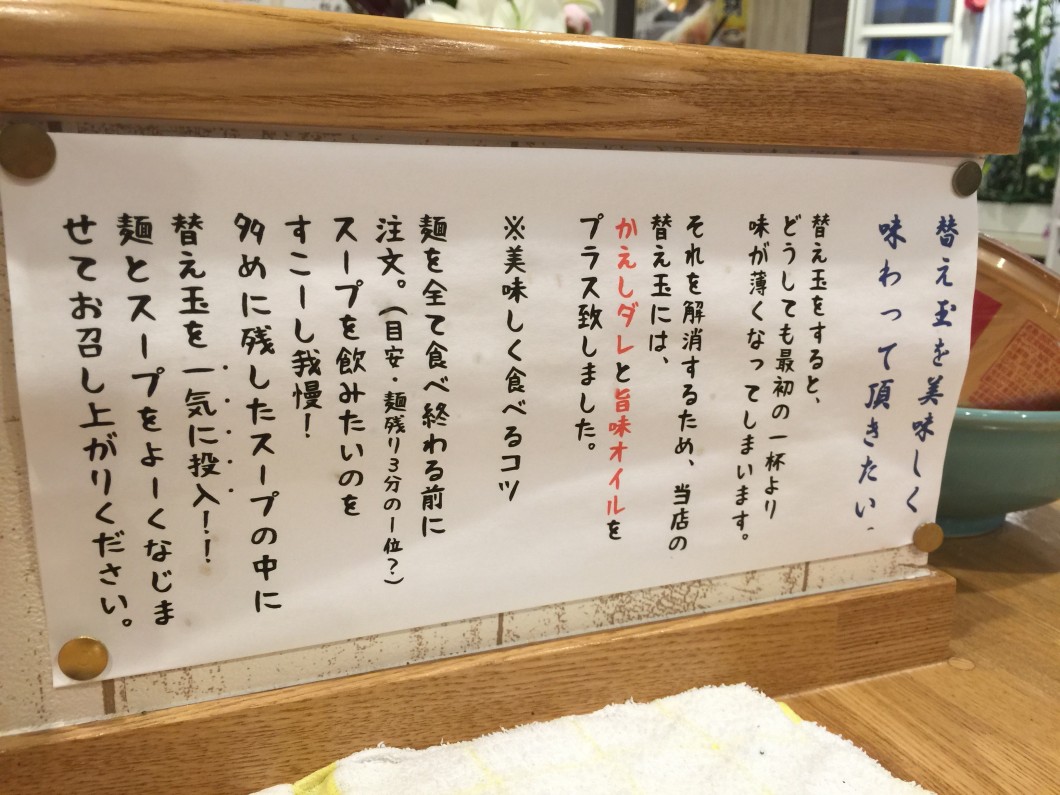 替え玉を美味しく
味わって頂きたい。
替え玉をすると、
どうしても最初の一杯より
味が薄くなってしまいます。
それを解消するため、当店の
替え玉には、
かえしダレと旨味オイルを
プラス致しました。
※美味しく食べるコツ
麺を全て食べ終わる前に
注文。(目安・麺残り3分の1位?)
スープを飲みたいのを
すこーし我慢!
多めに残したスープの中に
替え玉を一気に投入!!
麺とスープをよーくなじま
せてお召し上がりください。